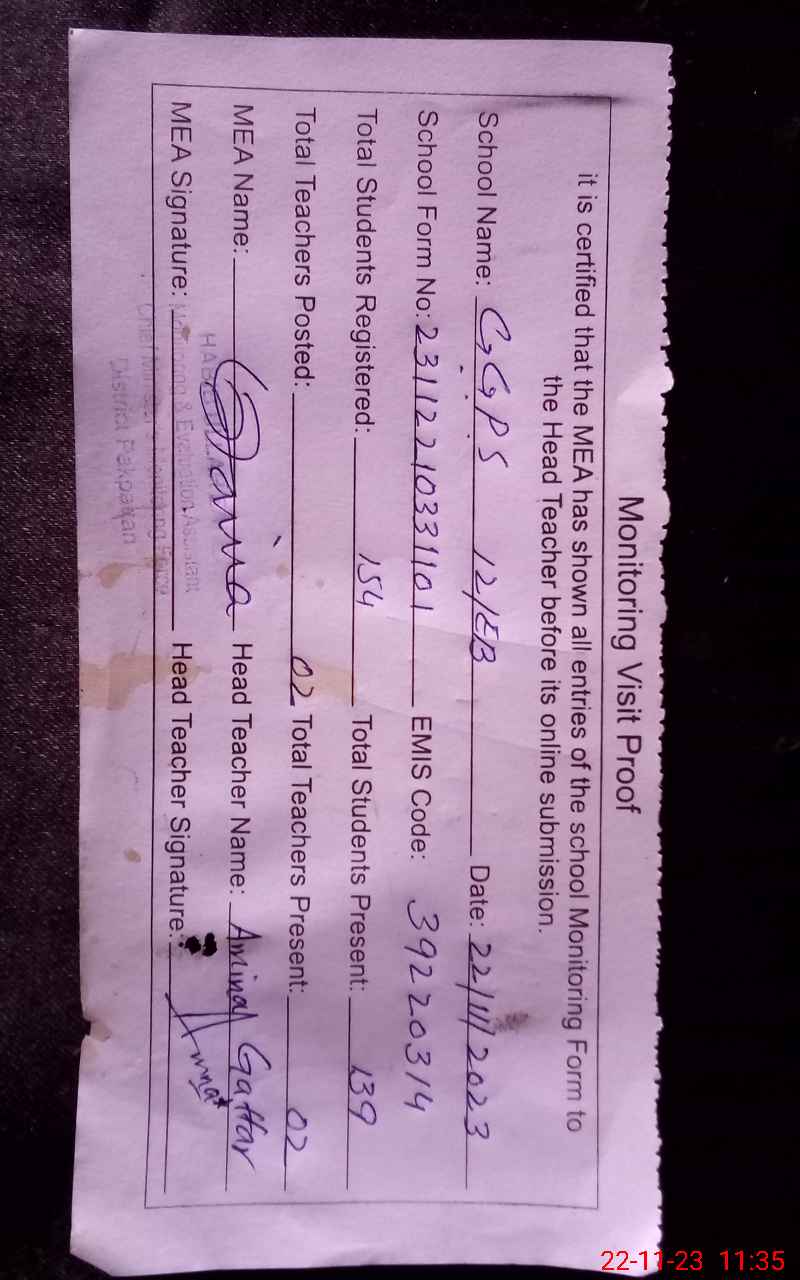 Monitoring Visit Proof
it is certified that the MEA has shown all entries of the school Monitoring Form to
the Head Teacher before its online submission.
School Name: GGPS 12/EB Date: 22/11/2023
School Form No: 23112210331101 EMIS Code: 39220314
Total Students Registered: 154 Total Students Present: 139
Total Teachers Posted: 02 Total Teachers Present: 02
MEA Name: Head Teacher Name: Gaffar
MEA Signature: Head Teacher Signature:
Monitoring & Evaluation Assistant
Chief Minister's Monitoring Force
District Pakpattan
22-11-23 11:35